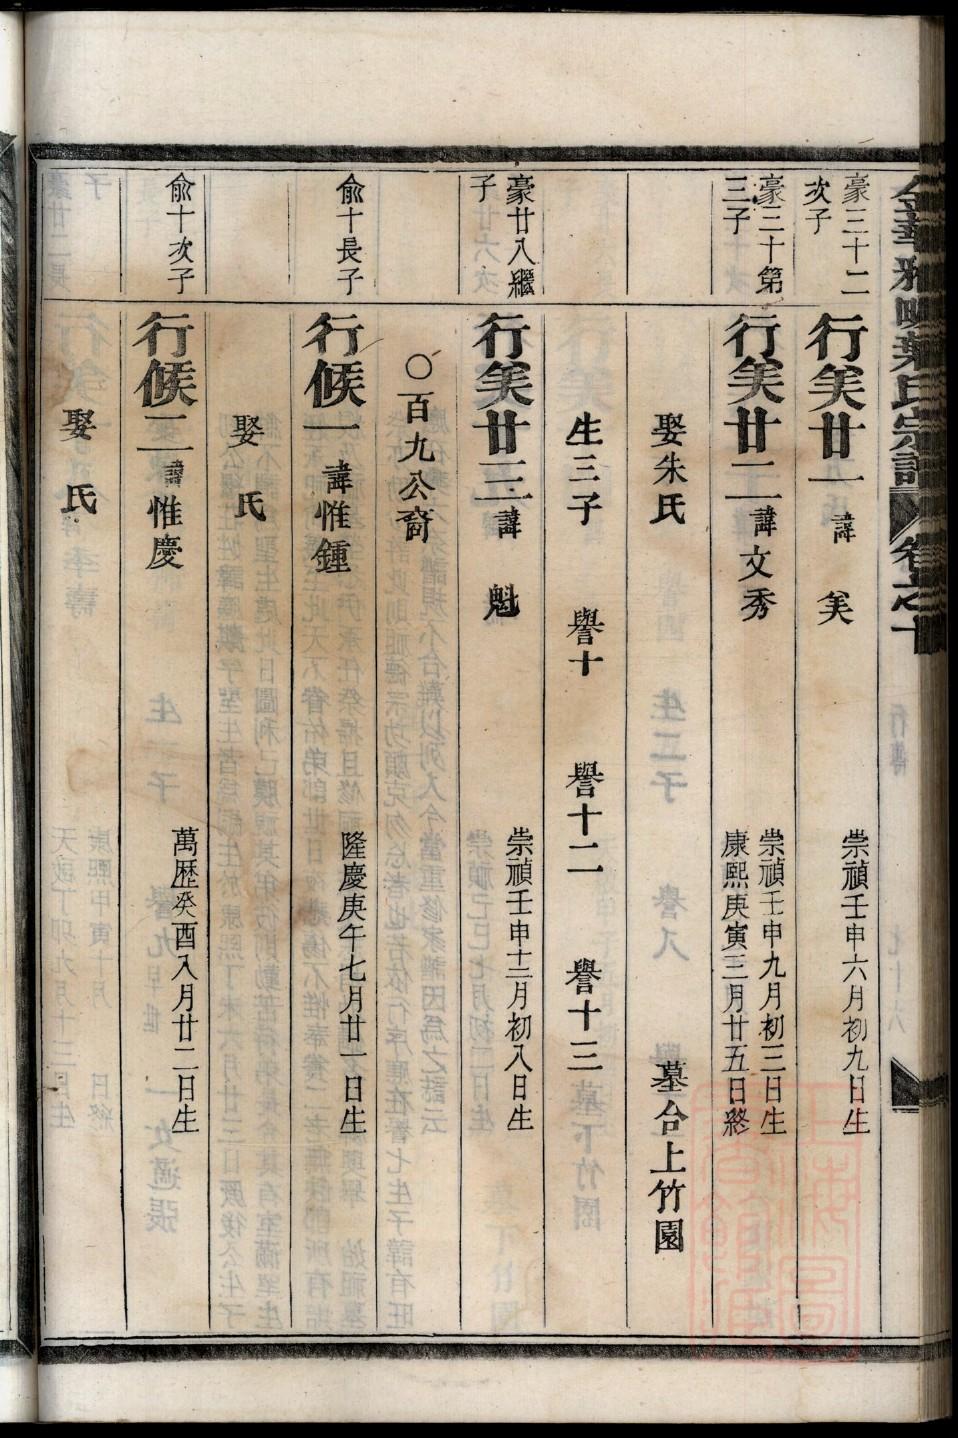 金華雅畈葉氏宗譜 卷之十
豪三十二
次子
行美廿一 諱 美 崇禎壬申六月初九日生
豪三十第
三子
行美廿二 諱文秀 崇禎壬申九月初三日生
康熙庚寅三月廿五日終
娶朱氏 墓合上竹園
生三子 譽十 譽十二 譽十三
豪廿八繼
子
行美廿三 諱 魁 崇禎壬申十二月初八日生
○百九公裔
俞十長子
行候一 諱惟鍾 隆慶庚午七月廿一日生
娶 氏
俞十次子
行候二 諱惟慶 萬歷癸酉八月廿二日生
娶 氏